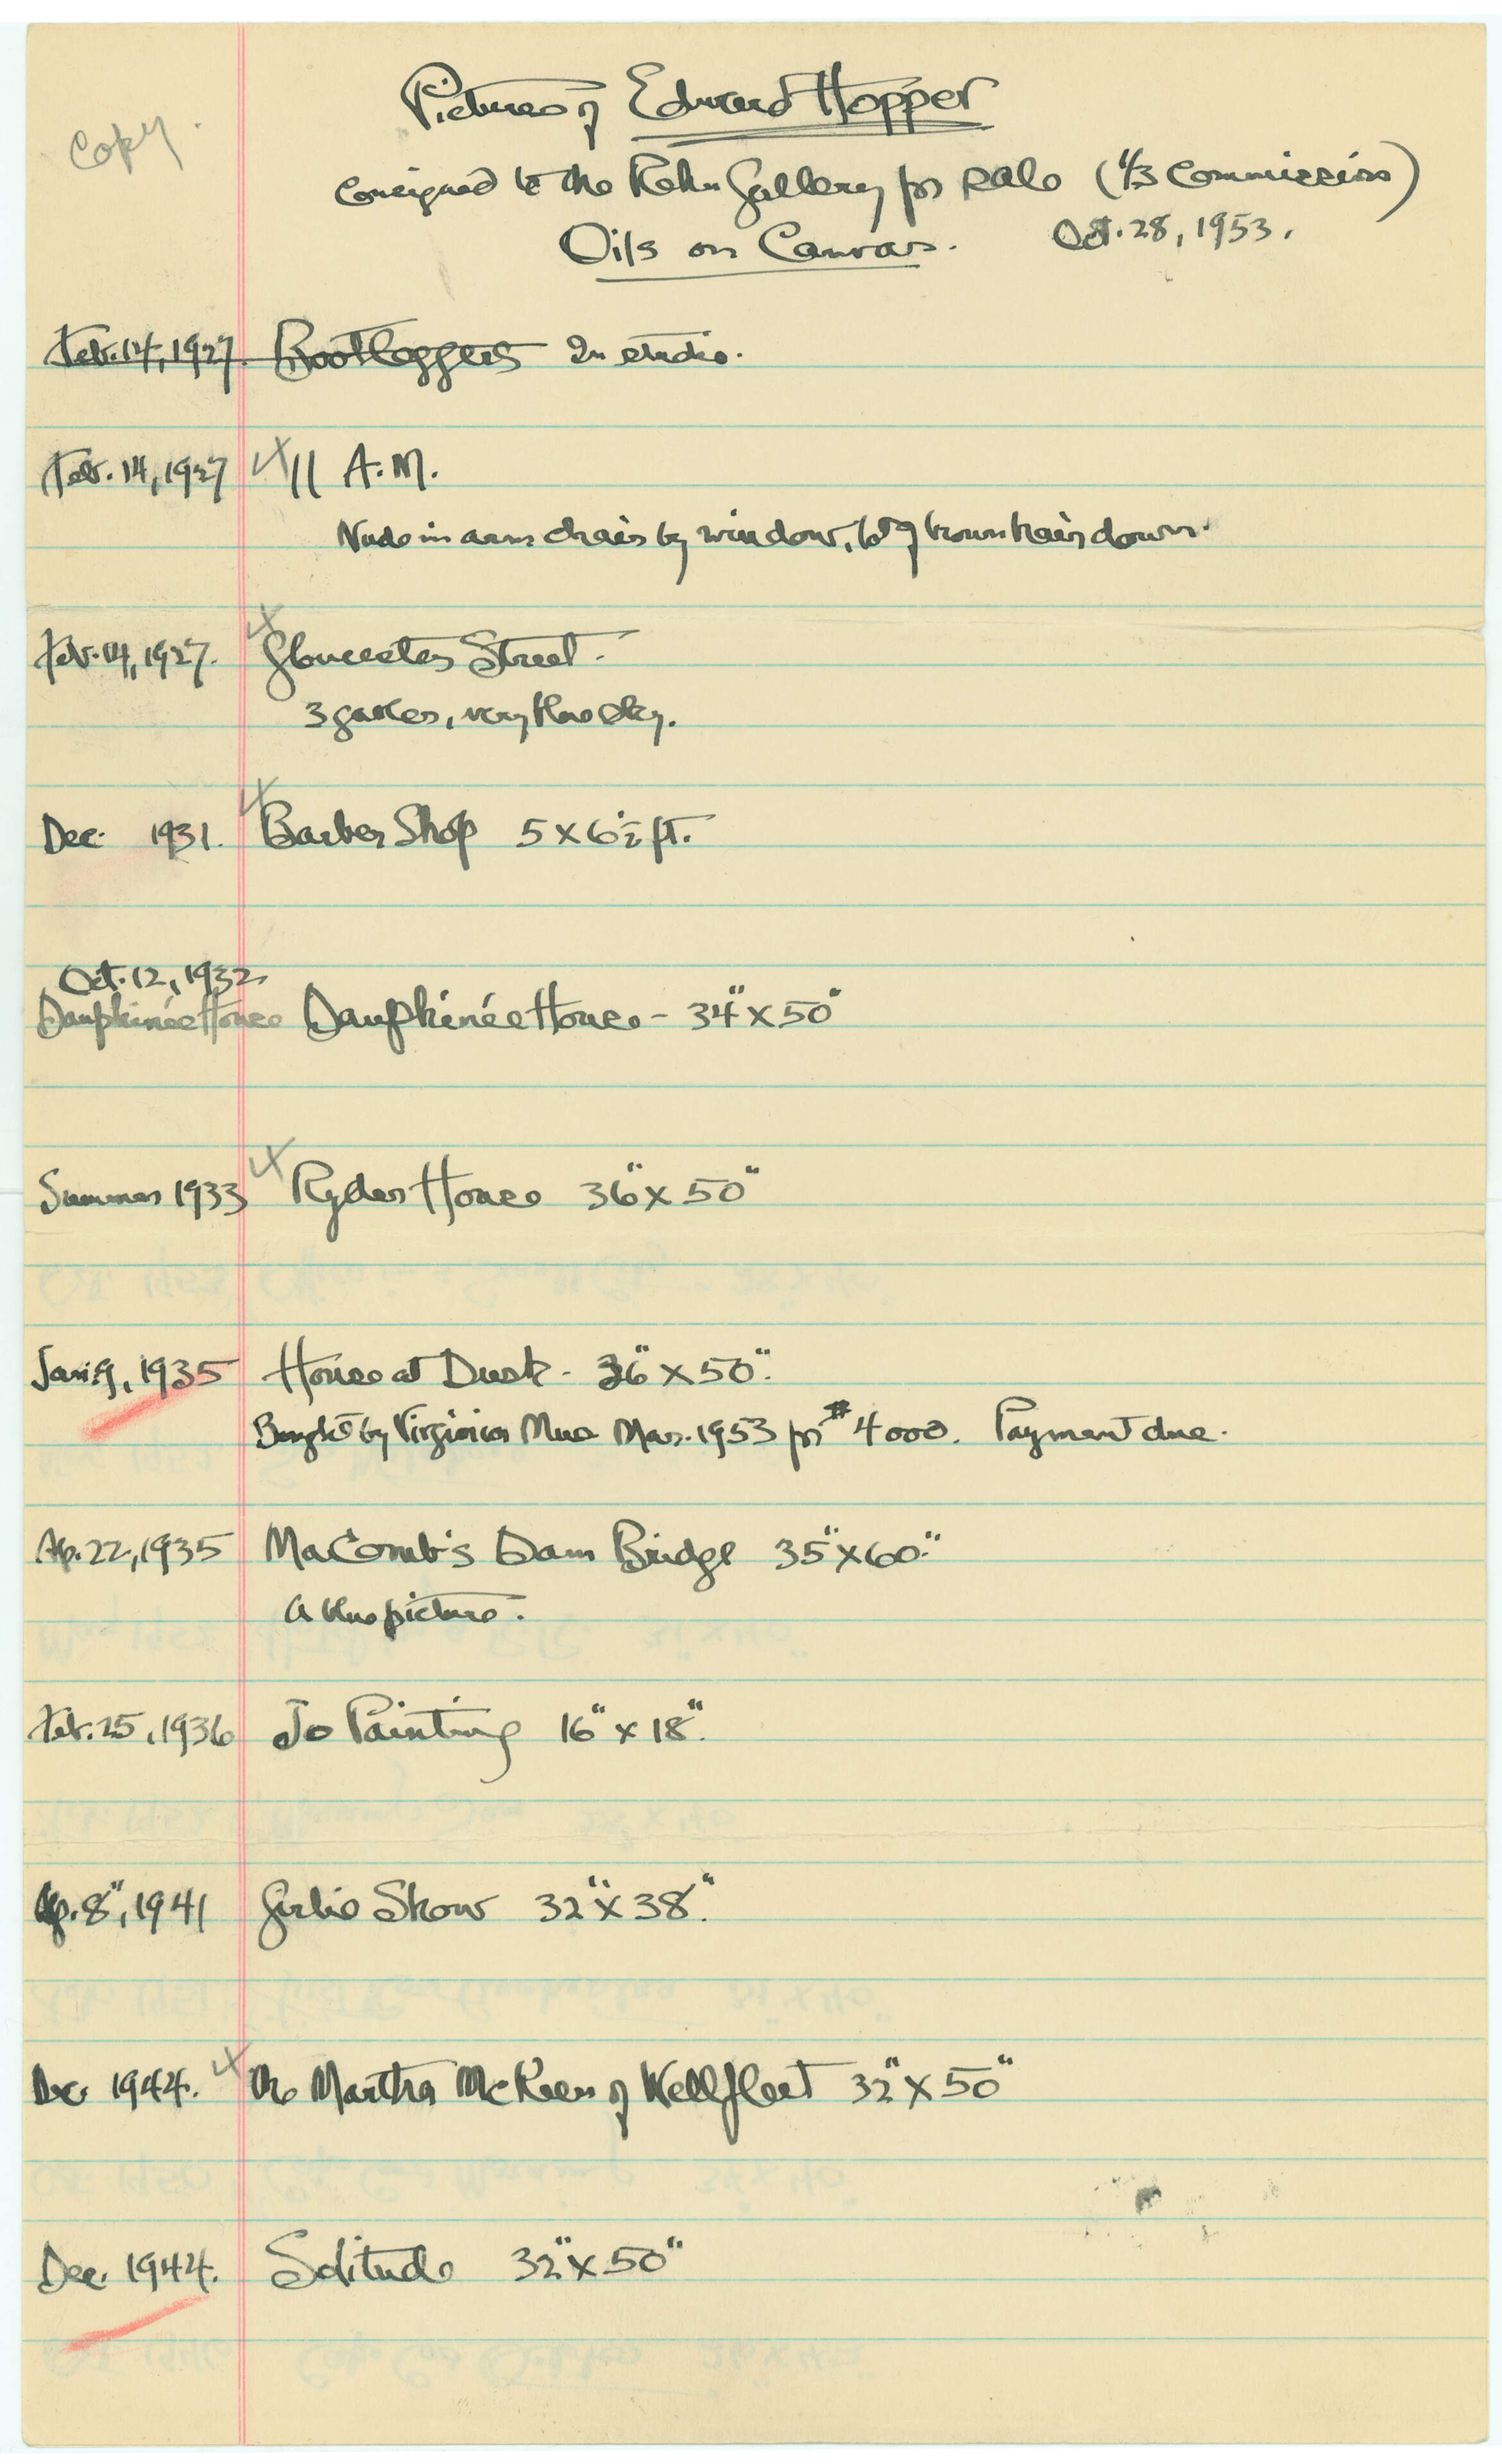 Copy.
Pictures of Edward Hopper
consigned to the Rehn Gallery for sale (1/3 Commission)
Oils on Canvas. Oct. 28, 1953.
Feb. 14, 1927. Bootleggers In studio.
Feb. 14, 1927 X 11 A.M.
Nude in arm chair by window, long brown hair down.
Feb. 14, 1927. X Gloucester Street.
3 gables, very blue sky.
Dec. 1931. X Barber Shop 5 x 6 1/2 ft.
Oct. 12, 1932
Dauphinée House Dauphinée House - 34" x 50"
Summer 1933 X Ryder House 36" x 50"
Jan. 9, 1935 House at Dusk - 36" x 50".
Bought by Virginia Mus. Mar. 1953 for $4000. Payment due.
Ap. 22, 1935 MaComb's Dam Bridge 35" x 60".
A blue picture.
Feb. 25, 1936 Jo Painting 16" x 18".
Ap. 8", 1941 Girlie Show 32" x 38".
Dec. 1944. X The Martha McKeen of Wellfleet 32" x 50"
Dec. 1944. Solitude 32" x 50"